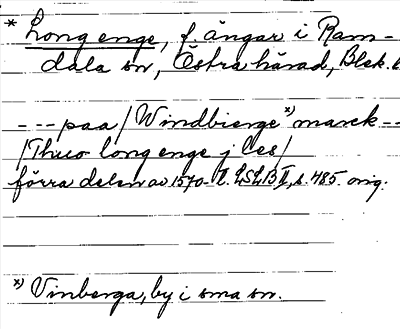 * Long enge, f. ängar i Ram-
dala sn, Östra härad, Blek. l
--- paa / Windbierge *) marck --
/ Thuo long enge j Ces /
förra delen av 1570-t. LSLB II, s. 485. orig.
*) Vinberga, by i sma sn.